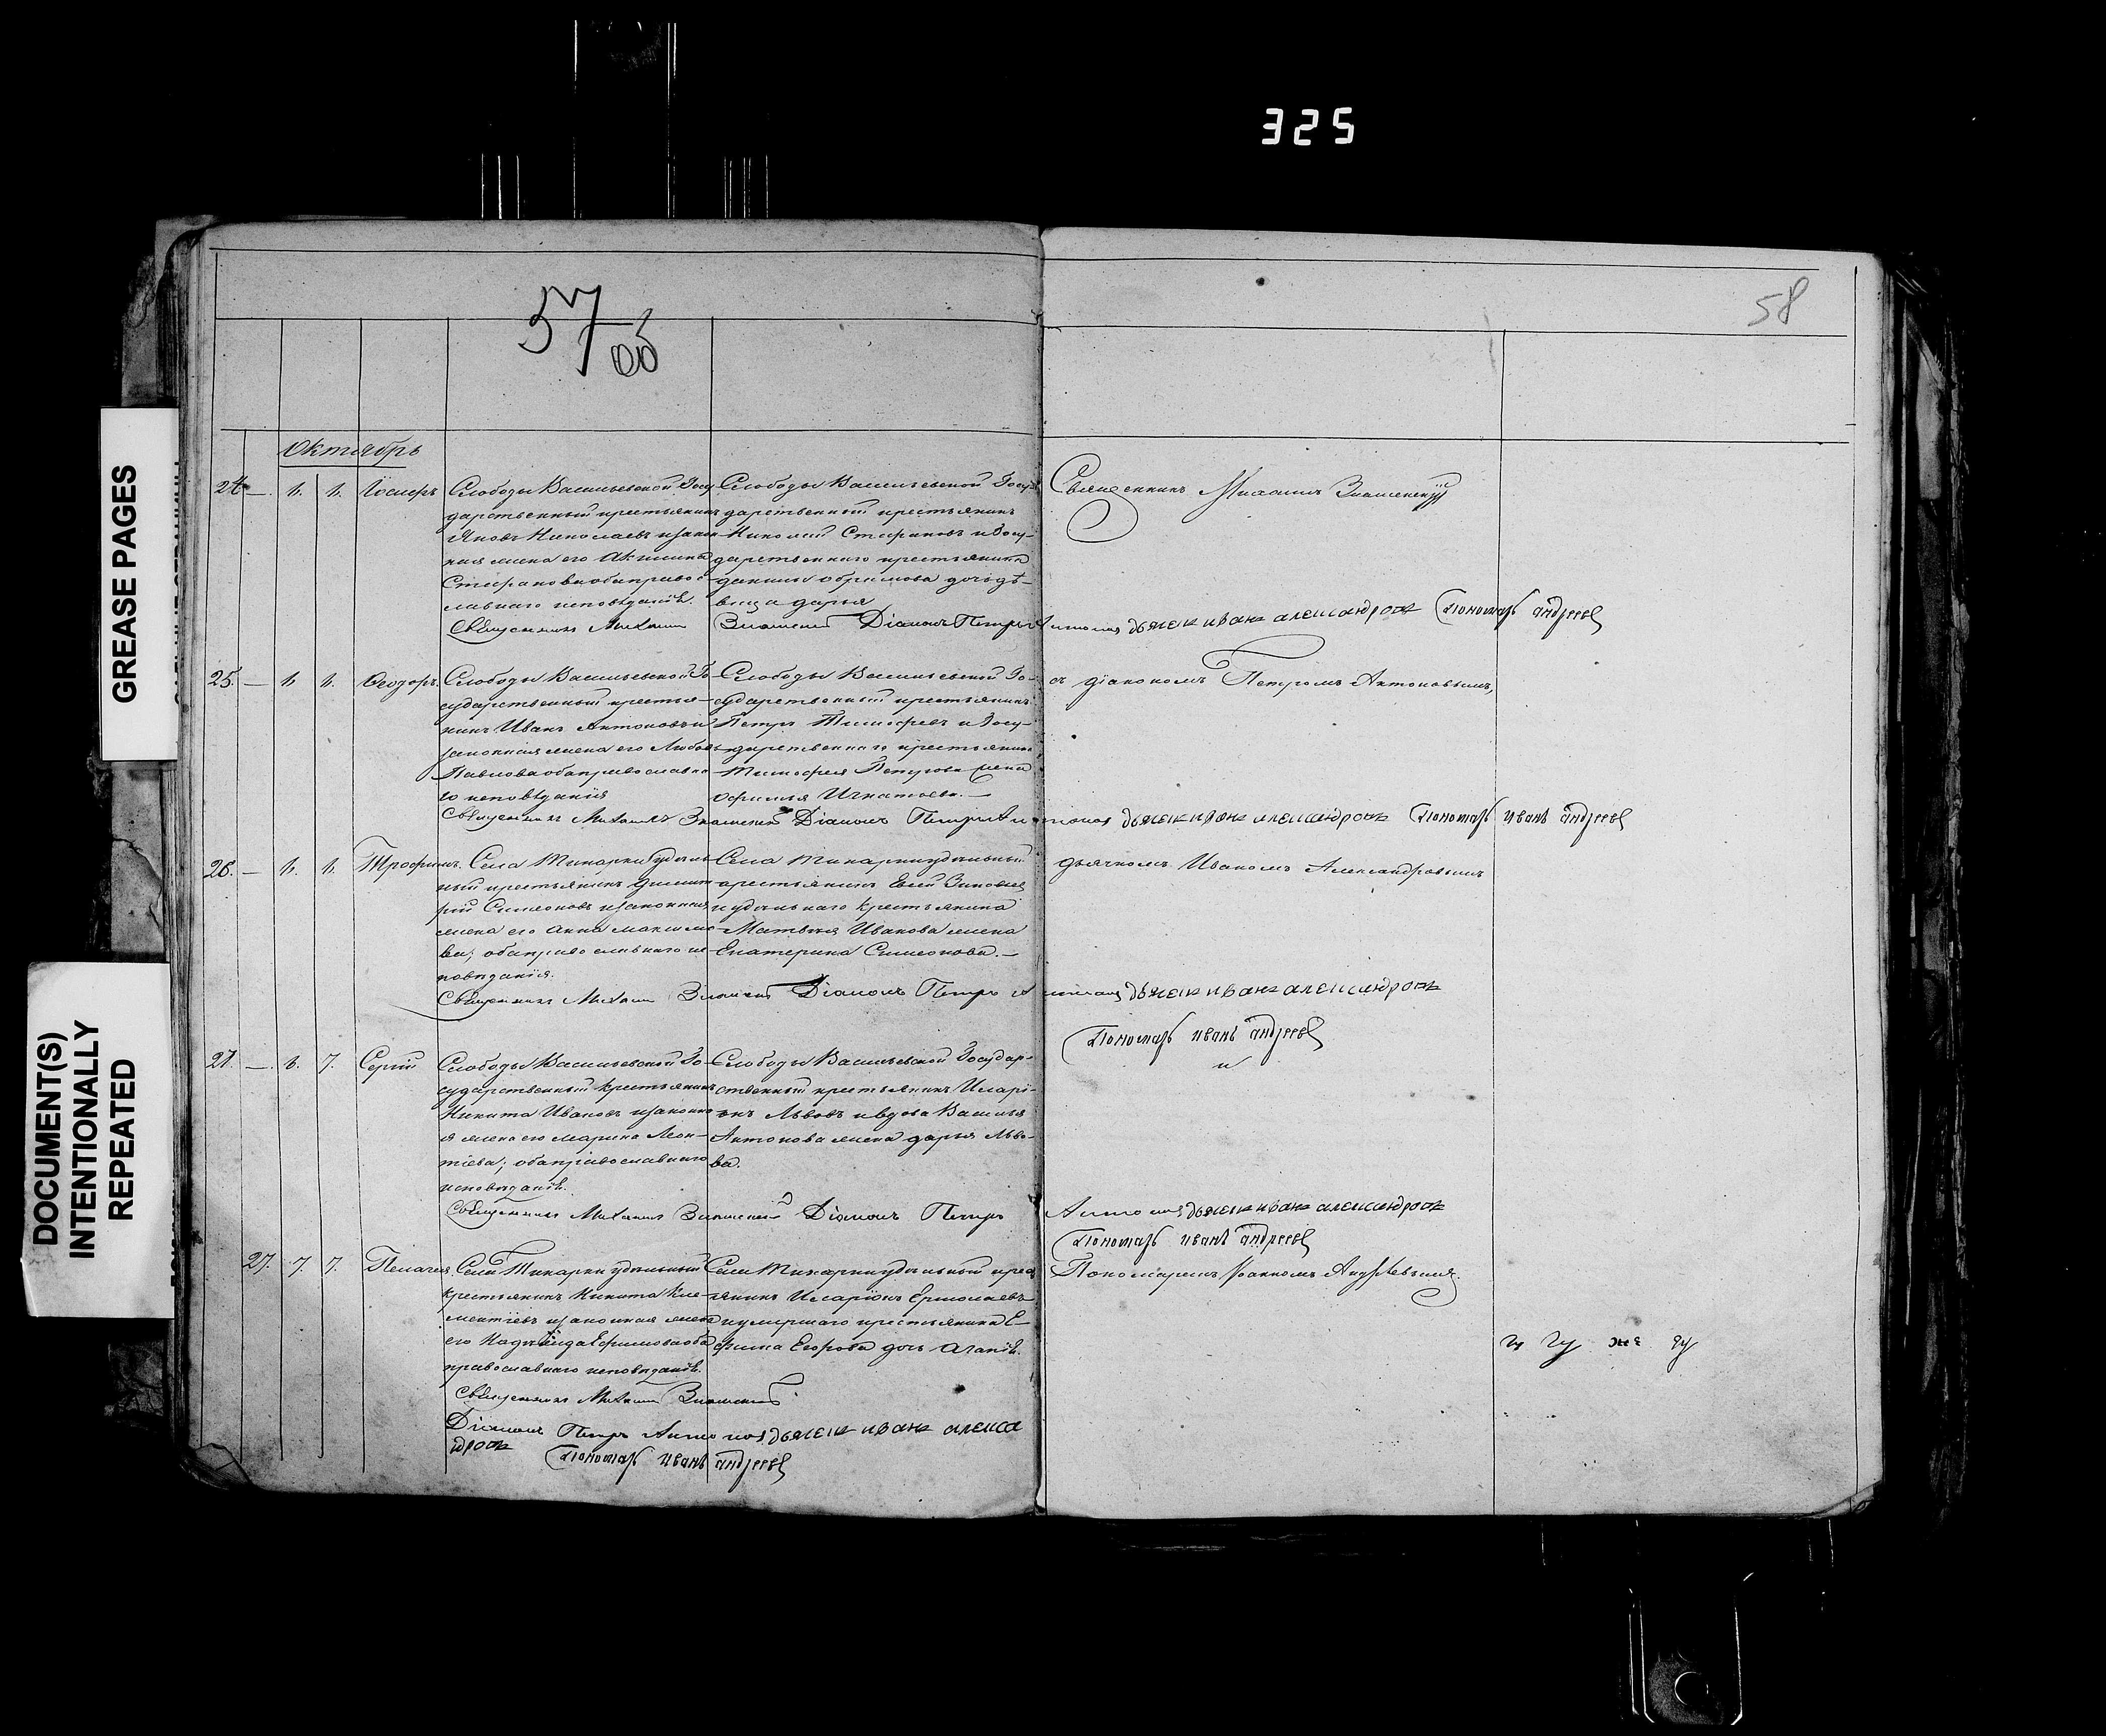 325
57 об
58
GREASE PAGES
DOCUMENT(S)
INTENTIONALLY
REPEATED
Октябрь
24. — 6. 6. Іосифъ
Слободы Васильевской Госу-
дарственный крестьянинъ
Яковъ Николаевъ и закон-
ная жена его Акилина
Стефановна оба правос-
лавнаго исповѣданія.
Слободы Васильевской Госу-
дарственный крестьянинъ
Николай Стефановъ и Госу-
дарственнаго крестьянина
дочь дѣ-
вица Дарья
Священникъ Михаилъ Знаменскій
Священникъ Михаилъ Знаменскій Діаконъ Петръ Антоновъ дьячек иванъ александровъ Пономарь андреевъ
25. — 6. 6. Ѳеодоръ.
Слободы Васильевской Го-
сударственный крестья-
нинъ Иванъ Антоновъ и
законная жена его Любовь
Павлова оба православна-
го исповѣданія
Слободы Васильевской Го-
сударственный крестьянинъ
Петръ Тимофеевъ и Госу-
дарственнаго крестьянина
Тимофея Петрова жена
Офимья Игнатьева. —
съ діакономъ Петромъ Антоновымъ,
Священникъ Михаилъ Знаменскій Діаконъ Петръ Антоновъ дьячек иванъ александровъ Пономарь иванъ андреевъ
26. — 6. 6. Трофимъ.
Села Тикарки удѣль-
ный крестьянинъ Димит-
рій Симеоновъ и законная
жена его Анна Максимо-
ва; оба православнаго ис-
повѣданія.
Села Тикарки удѣльный
крестьянинъ Евсей Зиновьев
и удѣльнаго крестьянина
Матвѣя Иванова жена
Екатерина Симеонова. —
дьячкомъ Иваномъ Александровымъ
Священникъ Михаилъ Знаменскій Діаконъ Петръ Антоновъ дьячек иванъ александровъ
Пономарь иванъ андреевъ
и
27. — 6. 7. Сергій
Слободы Васильевской Го-
сударственный крестьянинъ
Никита Ивановъ и законна-
я жена его Марина Леон-
тіева; оба православнаго
исповѣданія.
Слободы Васильевской Государ-
ственный крестьянинъ Иларі-
онъ Львовъ и вдова Василья
Антонова жена Дарья Льво-
ва.
Священникъ Михаилъ Знаменскій Діаконъ Петръ Антоновъ дьячек иванъ александровъ
Пономарь иванъ андреевъ
27. 7. 7. Пелагея
Села Тикарки удѣльный
крестьянинъ Никита Кле-
ментіевъ и законная жена
его Надежда Ефимова оба
православнаго исповѣданія.
Села Тикарки удѣльный крес
тянинъ Иларіонъ Ермолаевъ
и умершаго крестьянина Е-
фима Егорова дочь Агапія.
Пономаремъ Іоанномъ Андреевымъ.
Священникъ Михаилъ Знаменскій
Діаконъ Петръ Антоновъ дьячек иванъ алекса
ндровъ
Пономарь иванъ андреевъ